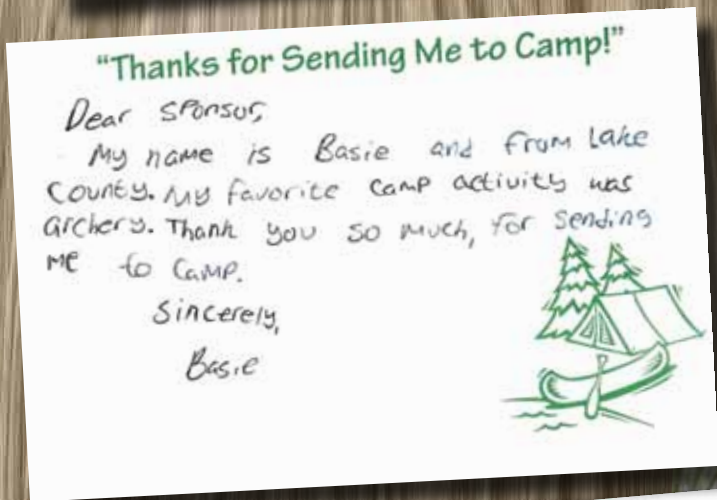 “Thanks for Sending Me to Camp!”
Dear Sponsor,
My name is Basie and from Lake
County. My favorite camp activity was
archery. Thank you so much, for sending
me to camp.
Sincerely,
Basie